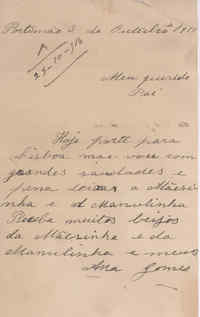 Portimão 3 de Outubro
Meu querido
Pai
Hoje parti para
Lisboa mas vou com
grandes saudades e
pena deixar a Mãesi
nha e a Manulinha
Receba muitos beijos
da Mãesinha e da
Manulinha e meus
Ana Gomes